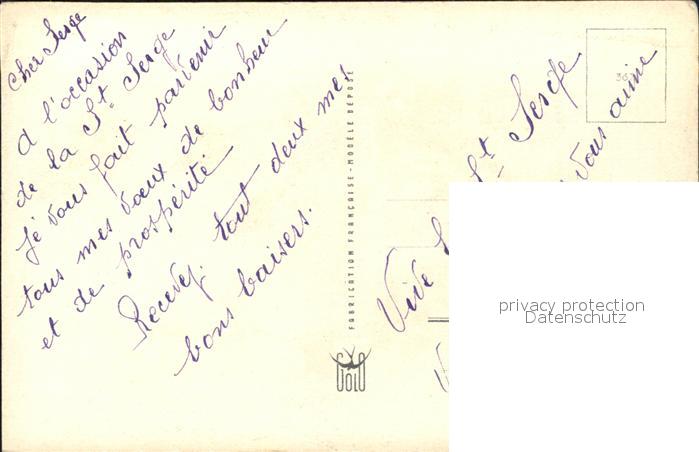 Cher Serge
A l'occasion
de la St Serge
Je vous fait parvenir
tous mes voeux de bonheur
et de prospérité
Recevez tout deux mes
bons baisers.
FABRICATION FRANÇAISE - MODÈLE DÉPOSÉ
GOLO
Vive St Serge
vous aime
privacy protection
Datenschutz